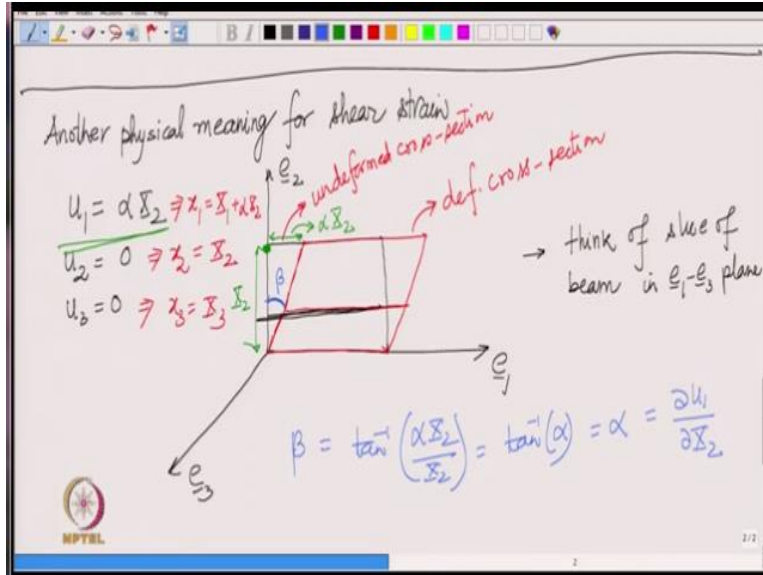 Another physical meaning for shear strain
u₁ = αX₂ ⇒ x₁ = X₁ + αX₂
u₂ = 0 ⇒ x₂ = X₂
u₃ = 0 ⇒ x₃ = X₃
e₂
undeformed cross-section
def. cross-section
αX₂
β
X₂
e₁
e₃
→ think of slice of
beam in e₁-e₃ plane
β = tan⁻¹(αX₂/X₂) = tan⁻¹(α) = α = ∂u₁/∂X₂
NPTEL
2/2
2